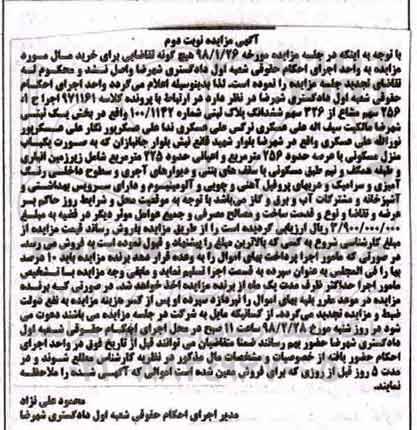 آگهی مزایده نوبت دوم
با توجه به اینکه در جلسه مزایده مورخه ۹۸/۱/۲۶ هیچ گونه تقاضایی برای خرید مال مورد
مزایده به واحد اجرای احکام حقوقی شعبه اول دادگستری شهرضا واصل نشد و محکوم له
تقاضای تجدید جلسه مزایده را نموده است. لذا بدینوسیله اعلام می‌گردد واحد اجرای احکام
حقوقی شعبه اول دادگستری شهرضا در نظر دارد در ارتباط با پرونده کلاسه ۹۷۱۱۶۱ اجرا ح ۱،
۲۵۶ سهم مشاع از ۳۳۶ سهم ششدانگ پلاک ثبتی شماره ۱۰۰/۱۱۴۲ واقع در بخش یک ثبتی
شهرضا مالکیت سیف اله علی عسکری نرگس علی عسکری ندا علی عسکرپور نگار علی عسکرپور
نوراله علی عسکری واقع در شهرضا بلوار شهید قانع نبش بلوار جانبازان که به صورت یکباب
منزل مسکونی با عرصه حدود ۲۵۶ مترمربع و اعیانی حدود ۲۲۵ مترمربع شامل زیرزمین انباری
و طبقه همکف و نیم طبق مسکونی با سقف های بتنی و دیوارهای آجری و سطوح داخلی رنگ
آمیزی و سرامیک و دربهای پروفیل آهنی و چوبی و آلومینیوم و دارای سرویس بهداشتی و
آشپزخانه و مشترکات آب و برق و گاز می‌باشد با توجه به موقعیت محل و شرایط روز حاکم بر
عرضه و تقاضا و نوع و قدمت ساخت و مصالح مصرفی و جمیع عوامل موثر دیگر در قضیه به مبلغ
۳/۹۰۰/۰۰۰/۰۰۰ ریال ارزیابی گردیده است را از طریق مزایده بفروش رساند قیمت مزایده از
مبلغ کارشناسی شروع به کسی که بالاترین مبلغ را پیشنهاد و قبول نموده است به فروش می رسد،
در صورتی که مامور اجرا پرداخت بهای اموال را به وعده قرار دهد برنده مزایده باید ۱۰ درصد
بها را فی المجلس به عنوان سپرده به قسمت اجرا تسلیم نماید و مابقی وجه مزایده با تشخیص
مامور اجرا حداکثر ظرف مدت یک ماه از برنده مزایده اخذ خواهد شد. در صورتی که برنده
مزایده در موعد مقرر بقیه بهای اموال را نپردازد سپرده او پس از کسر هزینه مزایده به نفع دولت
ضبط و مزایده تجدید می‌گردد. از کسانیکه مایل به شرکت در جلسه مزایده می باشند دعوت می
شود در روز شنبه مورخ ۹۸/۲/۲۸ ساعت ۱۱ صبح در محل اجرای احکام حقوقی شعبه اول
دادگستری شهرضا حضور بهم رسانند ضمنا متقاضیان می توانند قبل از تاریخ فوق در واحد اجرای
احکام حضور یافته از خصوصیات و مشخصات مال مذکور در نظریه کارشناس مطلع شوند و در
مدت ۵ روز قبل از روزی که برای فروش معین شده است اموالی که آگهی شده را ملاحظه
نمایند.
محمود علی نژاد
مدیر اجرای احکام حقوقی شعبه اول دادگستری شهرضا